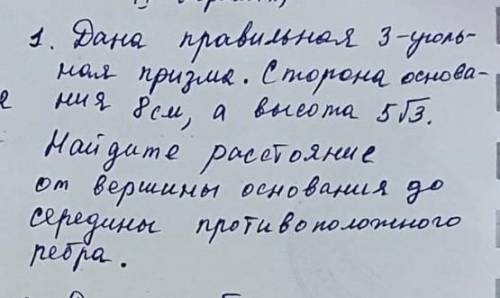 1. Дана правильная 3-уголь-
ная призма. Сторона основа-
ния 8см, а высота 5√3.
Найдите расстояние
от вершины основания до
середины противоположного
ребра.